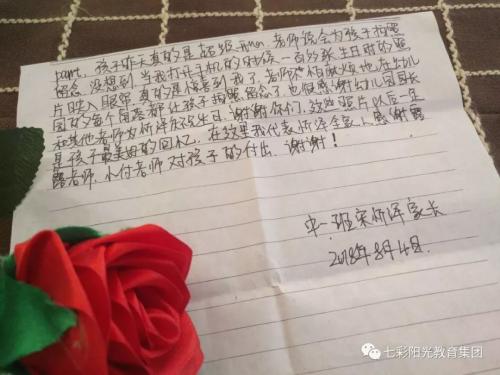 party, 孩子昨天真的是超级 老师能会为孩子拍照
留念 没想到 当我打开手机的时候 一百多张生日时的照
片映入眼帘 真的是惊喜到我了 老师不怕麻烦地在幼儿
园的每个角落都让孩子拍照留念了 也很感谢幼儿园园长
和其他老师为忻泽庆祝生日 谢谢你们 这些照片以后一定
是孩子最美好的回忆 在这里我代表忻泽全家人感谢露
露老师 小付老师对孩子的付出 谢谢!
中一班宋忻泽家长
2018年8月4日
七彩阳光教育集团